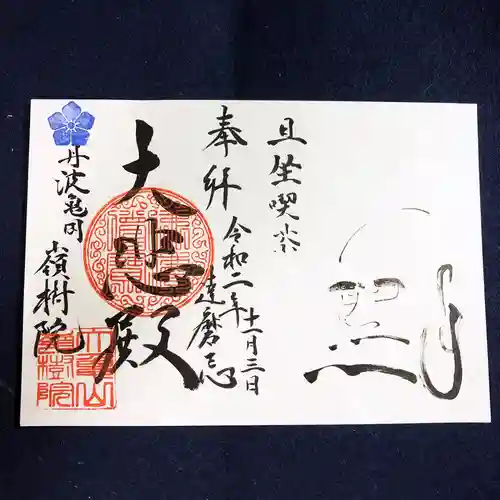 且坐喫茶
奉拝
令和二年十一月三日
達磨忌
大悲殿
丹波亀岡
嶺樹院